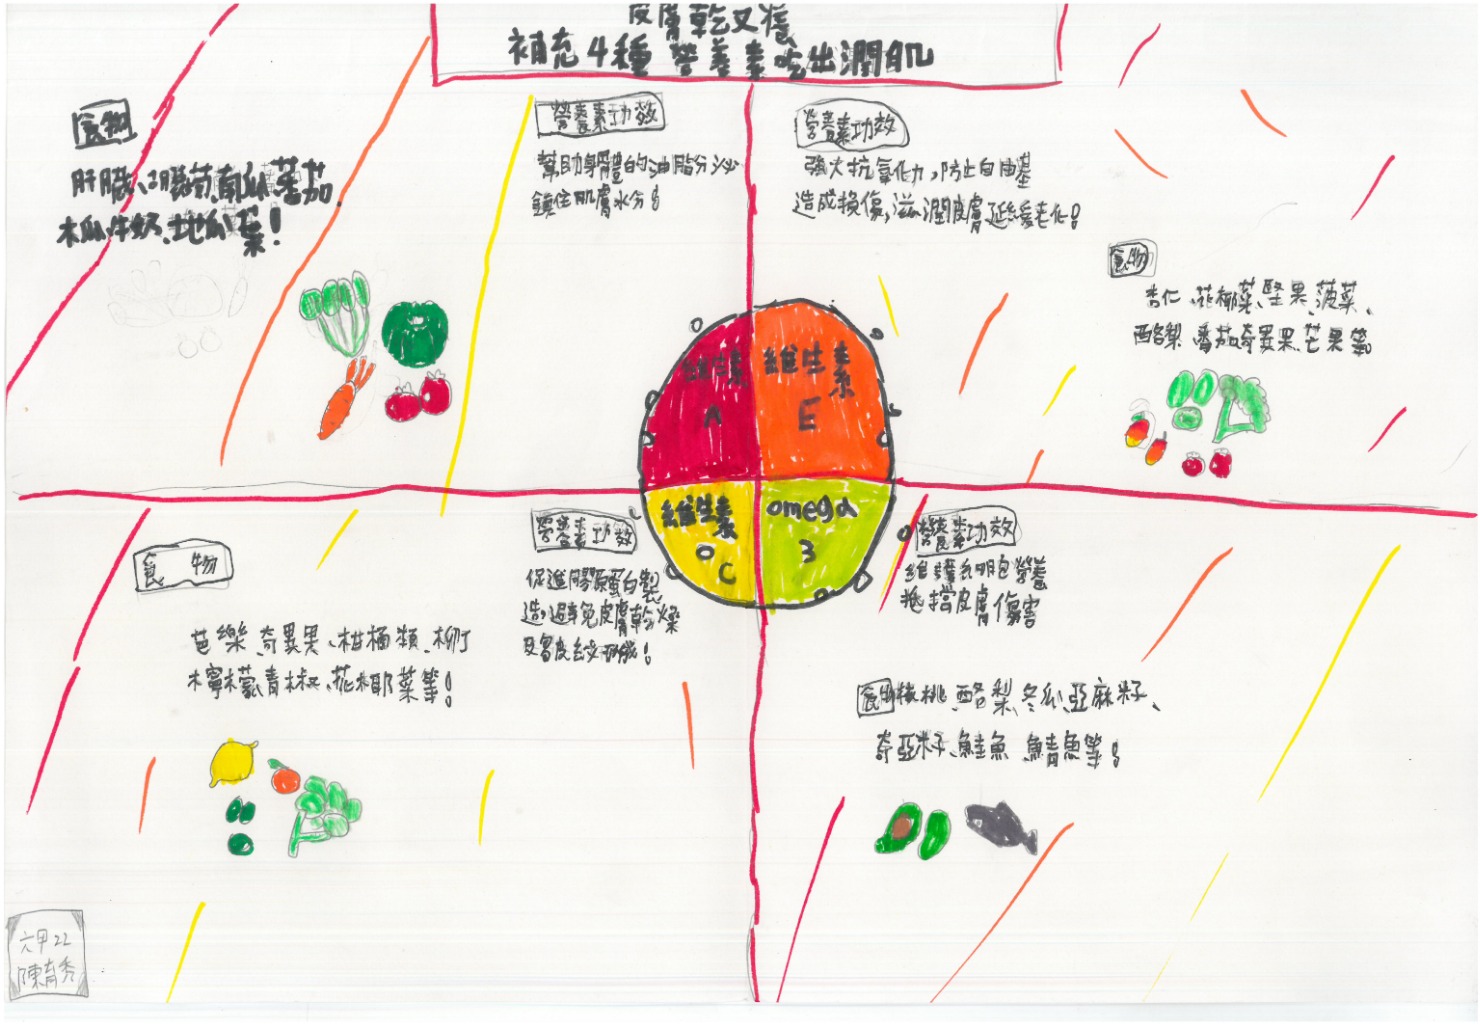 皮膚乾又癢
補充4種 營養素吃出潤肌
食物
肝臟、胡蘿蔔、南瓜、蕃茄、
木瓜牛奶、地瓜葉!
營養素功效
幫助身體的油脂分泌
鎮住肌膚水分!
營養素功效
強大抗氧化力,防止自由基
造成損傷,滋潤皮膚延緩老化!
食物
杏仁、花椰菜、堅果、菠菜、
酪梨、番茄、奇異果、芒果等
維生素
A
維生素
E
維生素
C
omega
3
食物
芭樂、奇異果、柑橘類、柳丁
檸檬、青椒、花椰菜等!
營養素功效
促進膠原蛋白製
造,避免皮膚乾燥
及皺皮紋形成!
營養素功效
維護細胞營養
抵擋皮膚傷害
食物核桃、酪梨、冬瓜、亞麻籽、
奇亞籽、鮭魚、鯖魚等!
六甲22
陳育秀